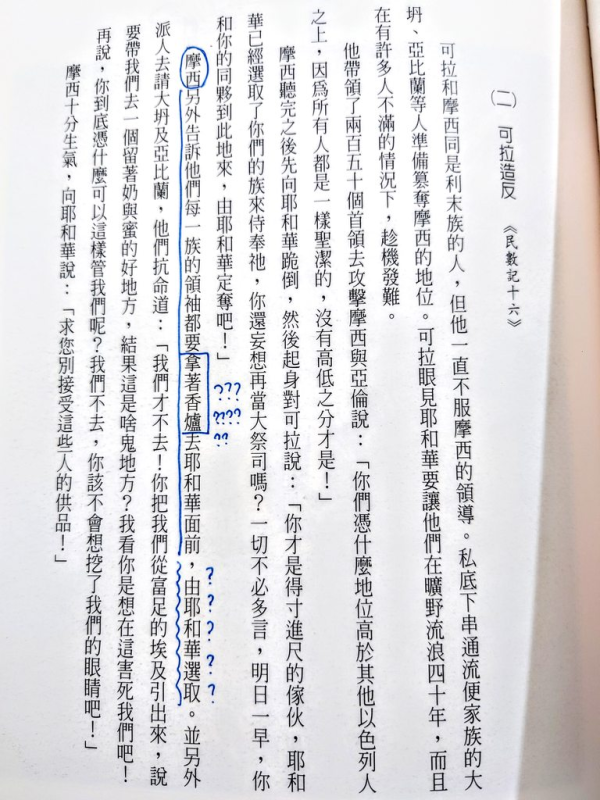 (二) 可拉造反 《民數記十六》
可拉和摩西同是利未族的人，但他一直不服摩西的領導。私底下串通流便家族的大
坍、亞比蘭等人準備篡奪摩西的地位。可拉眼見耶和華要讓他們在曠野流浪四十年，而且
在有許多人不滿的情況下，趁機發難。
他帶領了兩百五十個首領去攻擊摩西與亞倫說：「你們憑什麼地位高於其他以色列人
之上，因為所有人都是一樣聖潔的，沒有高低之分才是！」
摩西聽完之後先向耶和華跪倒，然後起身對可拉說：「你才是得寸進尺的傢伙，耶和
華已經選取了你們的族來侍奉祂，你還妄想再當大祭司嗎？一切不必多言，明日一早，你
和你的同夥到此地來，由耶和華定奪吧！」
??? ???? ??
摩西另外告訴他們每一族的領袖都要拿著香爐去耶和華面前，由耶和華選取。並另外
? ? ? ? ?
派人去請大坍及亞比蘭，他們抗命道：「我們才不去！你把我們從富足的埃及引出來，說
要帶我們去一個留著奶與蜜的好地方，結果這是啥鬼地方？我看你是想在這害死我們吧！
再說，你到底憑什麼可以這樣管我們呢？我們不去，你該不會想挖了我們的眼睛吧！」
摩西十分生氣，向耶和華說：「求您別接受這些人的供品！」